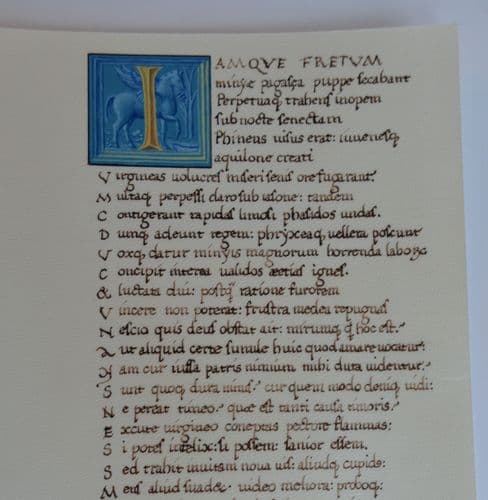 IAMQVE FRETUM
minyę pagasęa puppe secabant
Perpetuaq; trahens inopem
sub nocte senectam
Phineus uisus erat: iuuenesq;
aquilone creati
Virgineas uolucres miseri senis ore fugarant.
Multaq; perpessi claro sub iasone: tandem
Contigerant rapidas limosi phasidos undas.
Dumq; adeunt regem: phryxeaq; uellera poscunt
Voxq; datur minyis magnorum horrenda laborum
Concipit interea ualidos æetias ignes.
& luctata diu: postq̃ ratione furorem
Vincere non poterat: frustra medea repugnas
Nescio quis deus obstat ait: mirumq; q̃ hoc est.
Aut aliquid certe simile huic quod amare uocatur.
Nam cur iussa patris nimium mihi dura uidentur.
Sunt quoq; dura nimis. cur quem modo deniq; uidi:
Ne pereat timeo. quæ est tanti causa timoris.
Excute uirgineo conceptas pectore flammas:
Si potes infelix: si possem: sanior essem.
Sed trahit inuitam noua uis: aliudq; cupido:
Mens aliud suadet. uideo meliora: proboq;